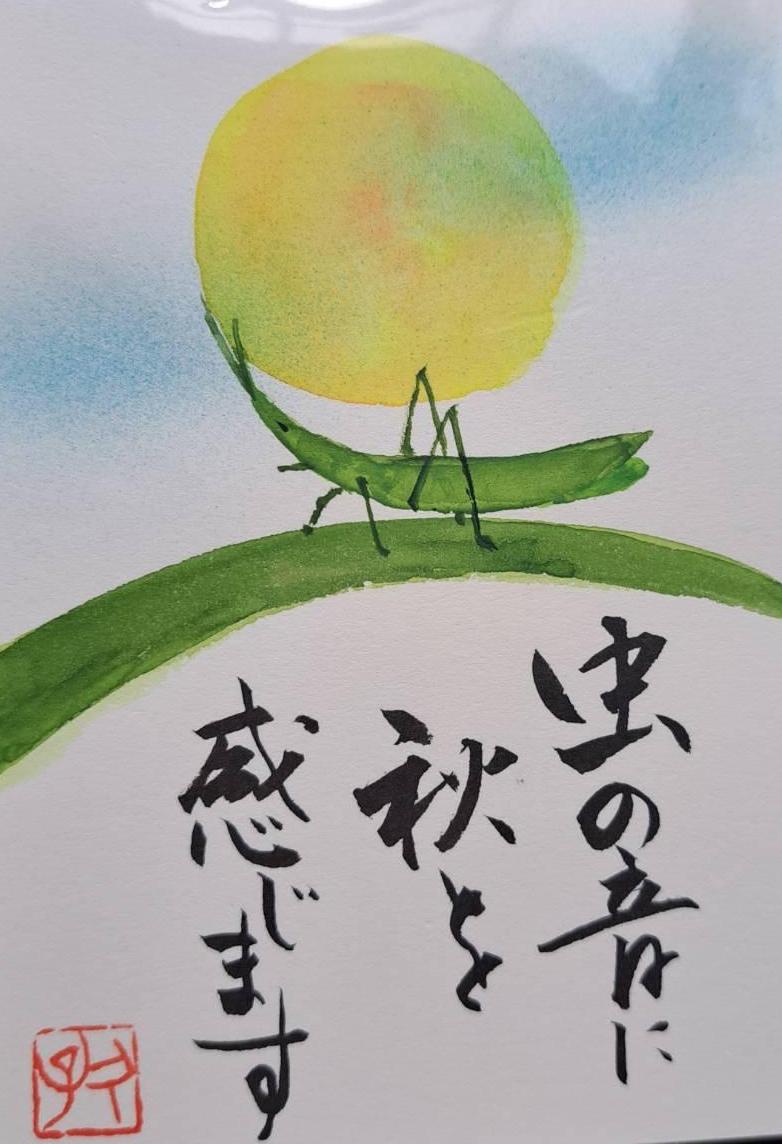 虫の音に
秋を
感じます